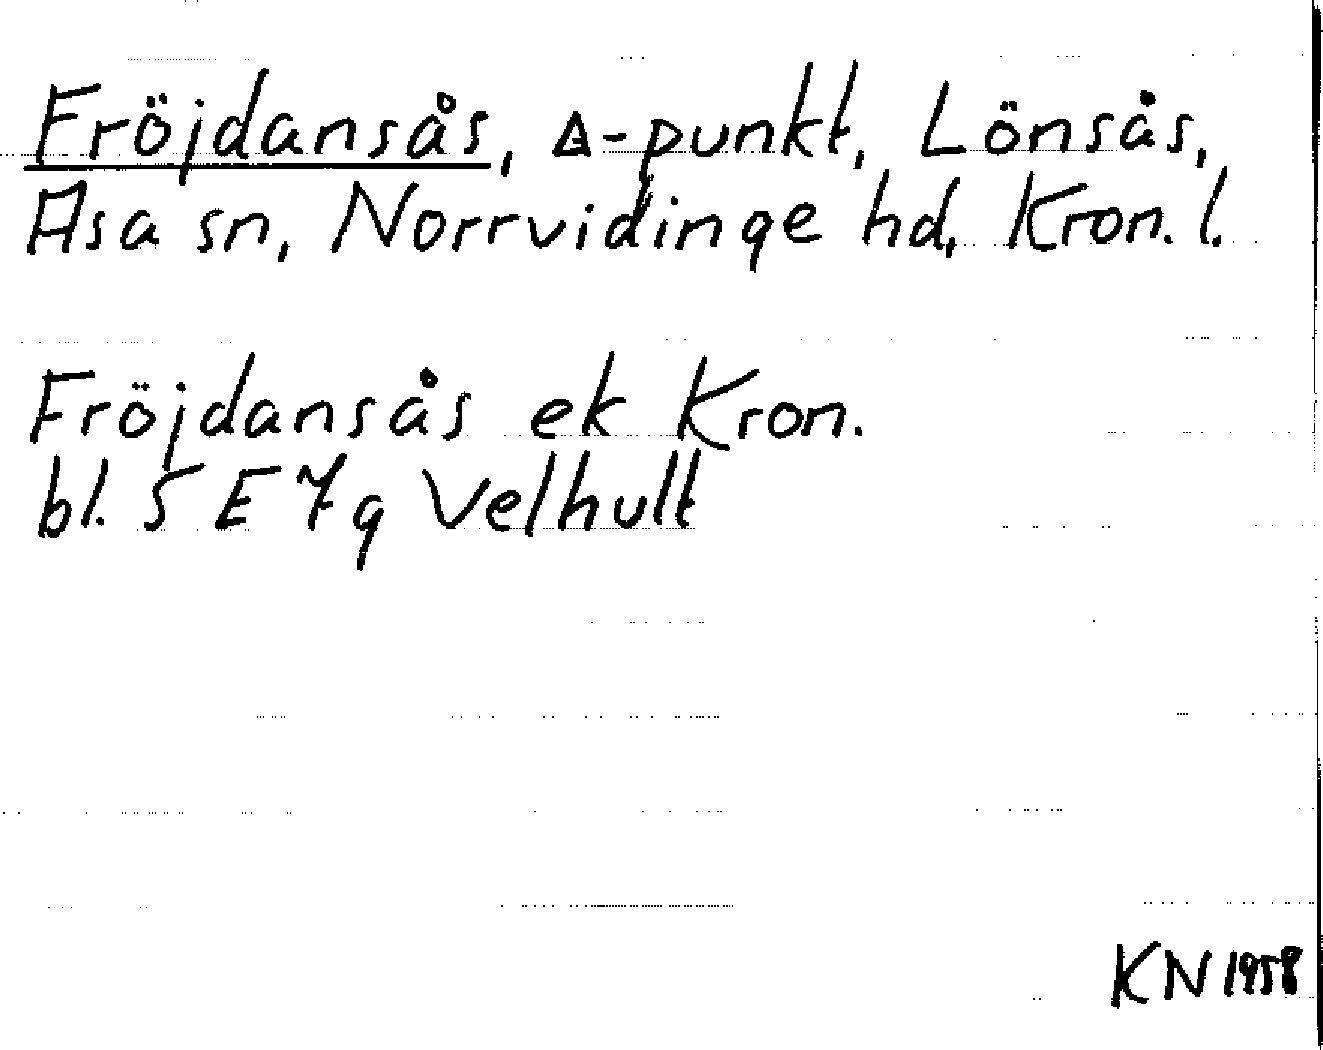 Fröjdansås, Δ-punkt, Lönsås,
Asa sn, Norrvidinge hd, Kron. l.
Fröjdansås ek Kron.
bl. 5 E 7g Velhult
KN 1958